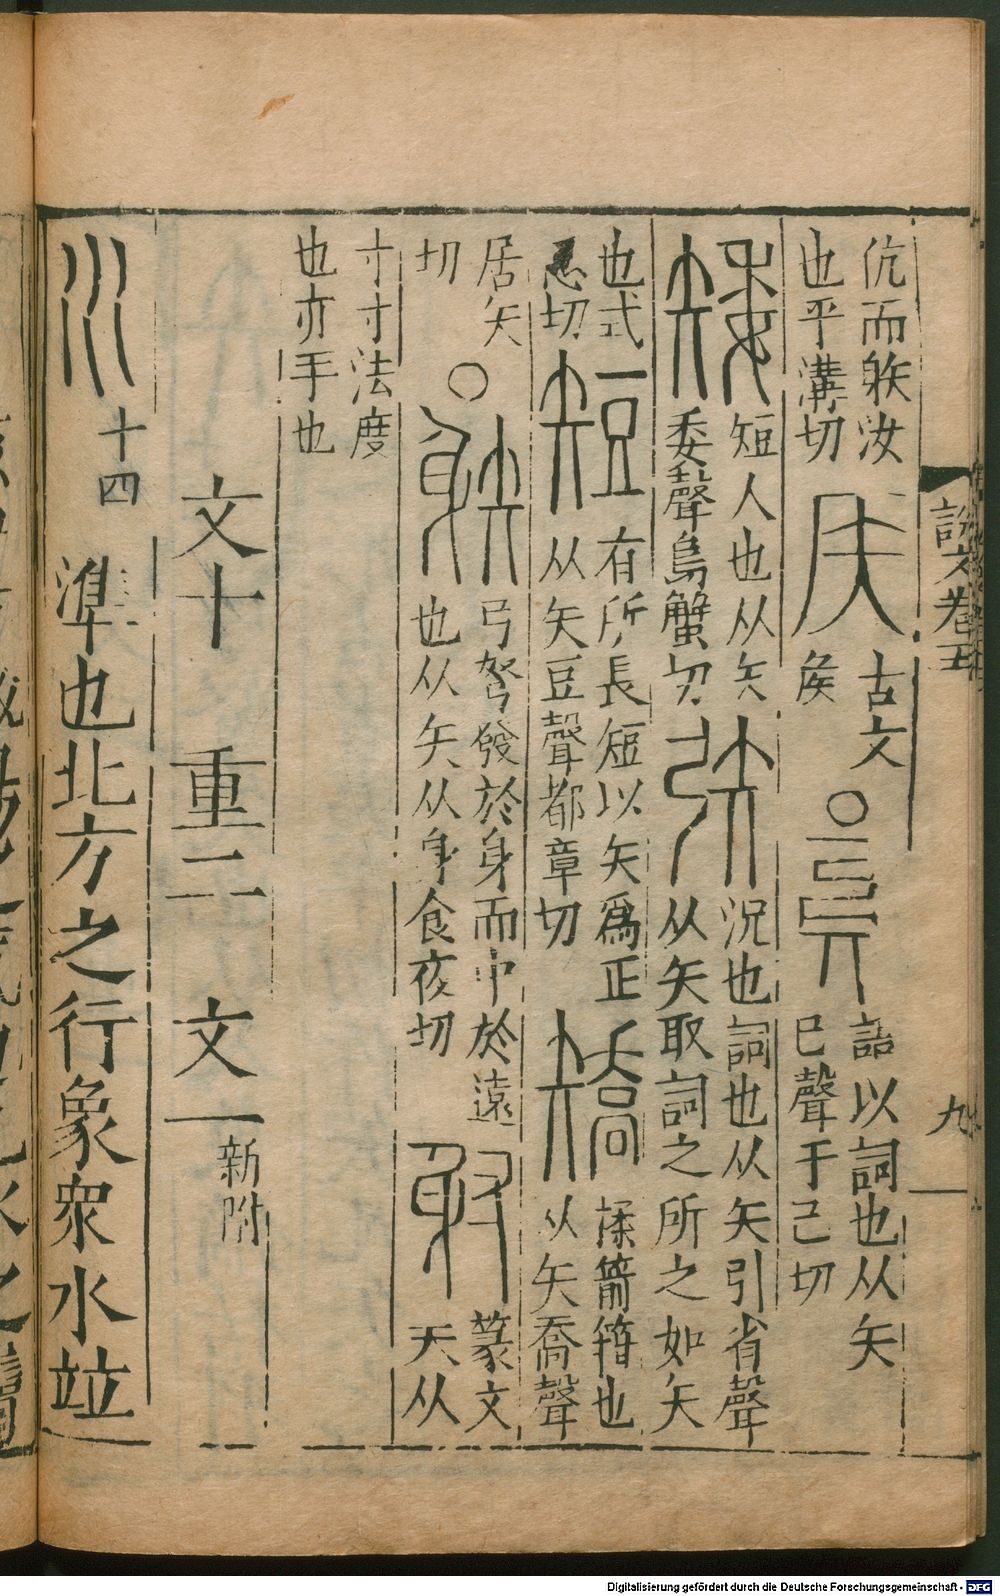 說文卷五
九
伉而躲汝
也平溝切
𥎦
古文
矦
○
矣
語以詞也从矢
巳聲于己切
矮
短人也从矢
委聲烏蟹切
矤
況也詞也从矢引省聲
从矢取詞之所之如矢
也式
忍切
短
有所長短以矢爲正
从矢豆聲都章切
矯
揉箭箝也
从矢喬聲
居矢
切
○
躲
弓弩發於身而中於遠
也从矢从身食夜切
射
篆文
天从
寸寸法度
也亦手也
文十 重二 文一 新附
水
十四
準也北方之行象眾水竝
Digitalisierung gefördert durch die Deutsche Forschungsgemeinschaft - DFG